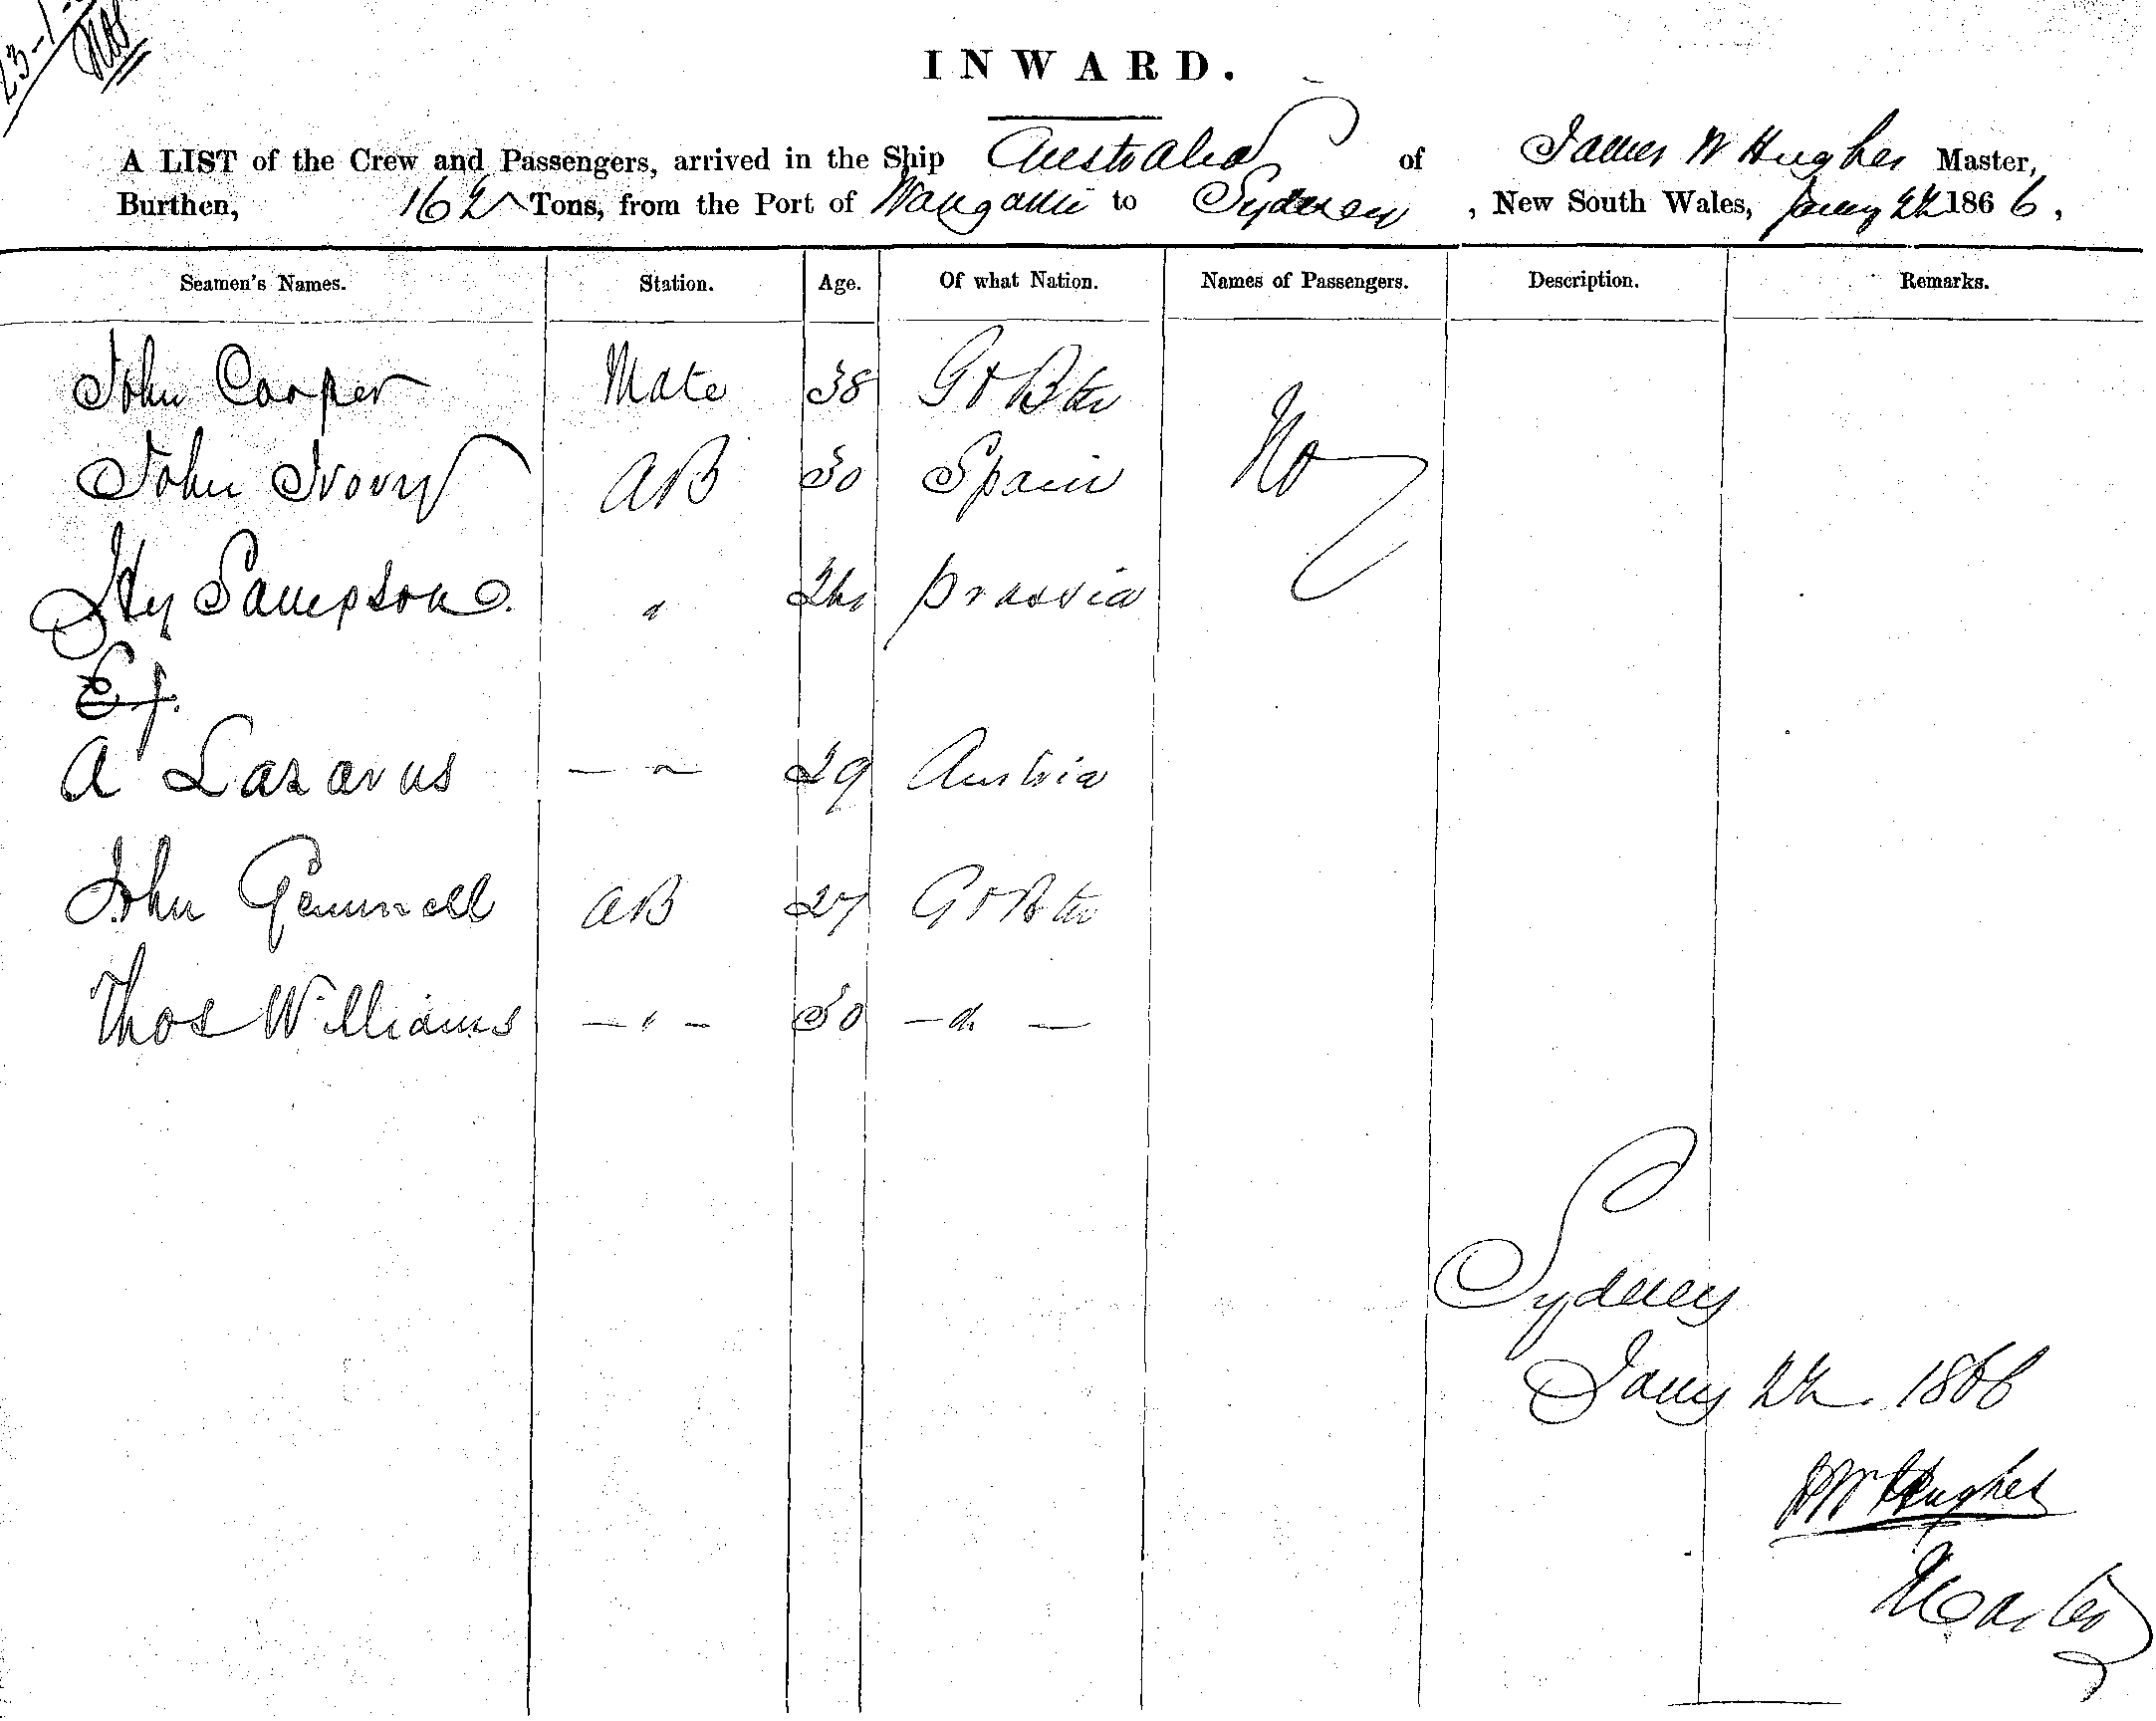 23-1-
INWARD.
A LIST of the Crew and Passengers, arrived in the Ship Australia of James W Hughes Master,
Burthen, 162 Tons, from the Port of Wanganui to Sydney, New South Wales, Jany 22 1866,
Seamen's Names. Station. Age. Of what Nation. Names of Passengers. Description. Remarks.
John Cooper Mate 38 Gt Btn No
John Ivory AB 30 Spain
Hy Sampson " Prussia
A Lazarus — " 29 Austria
John Gemmell AB 27 Gt Btn
Thos Williams — " — 30 — " —
Sydney
Jany 22. 1866
J W Hughes
Master